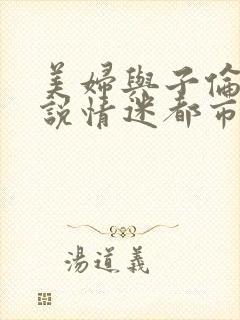 美婦與子倫
說情迷都市
湯道義